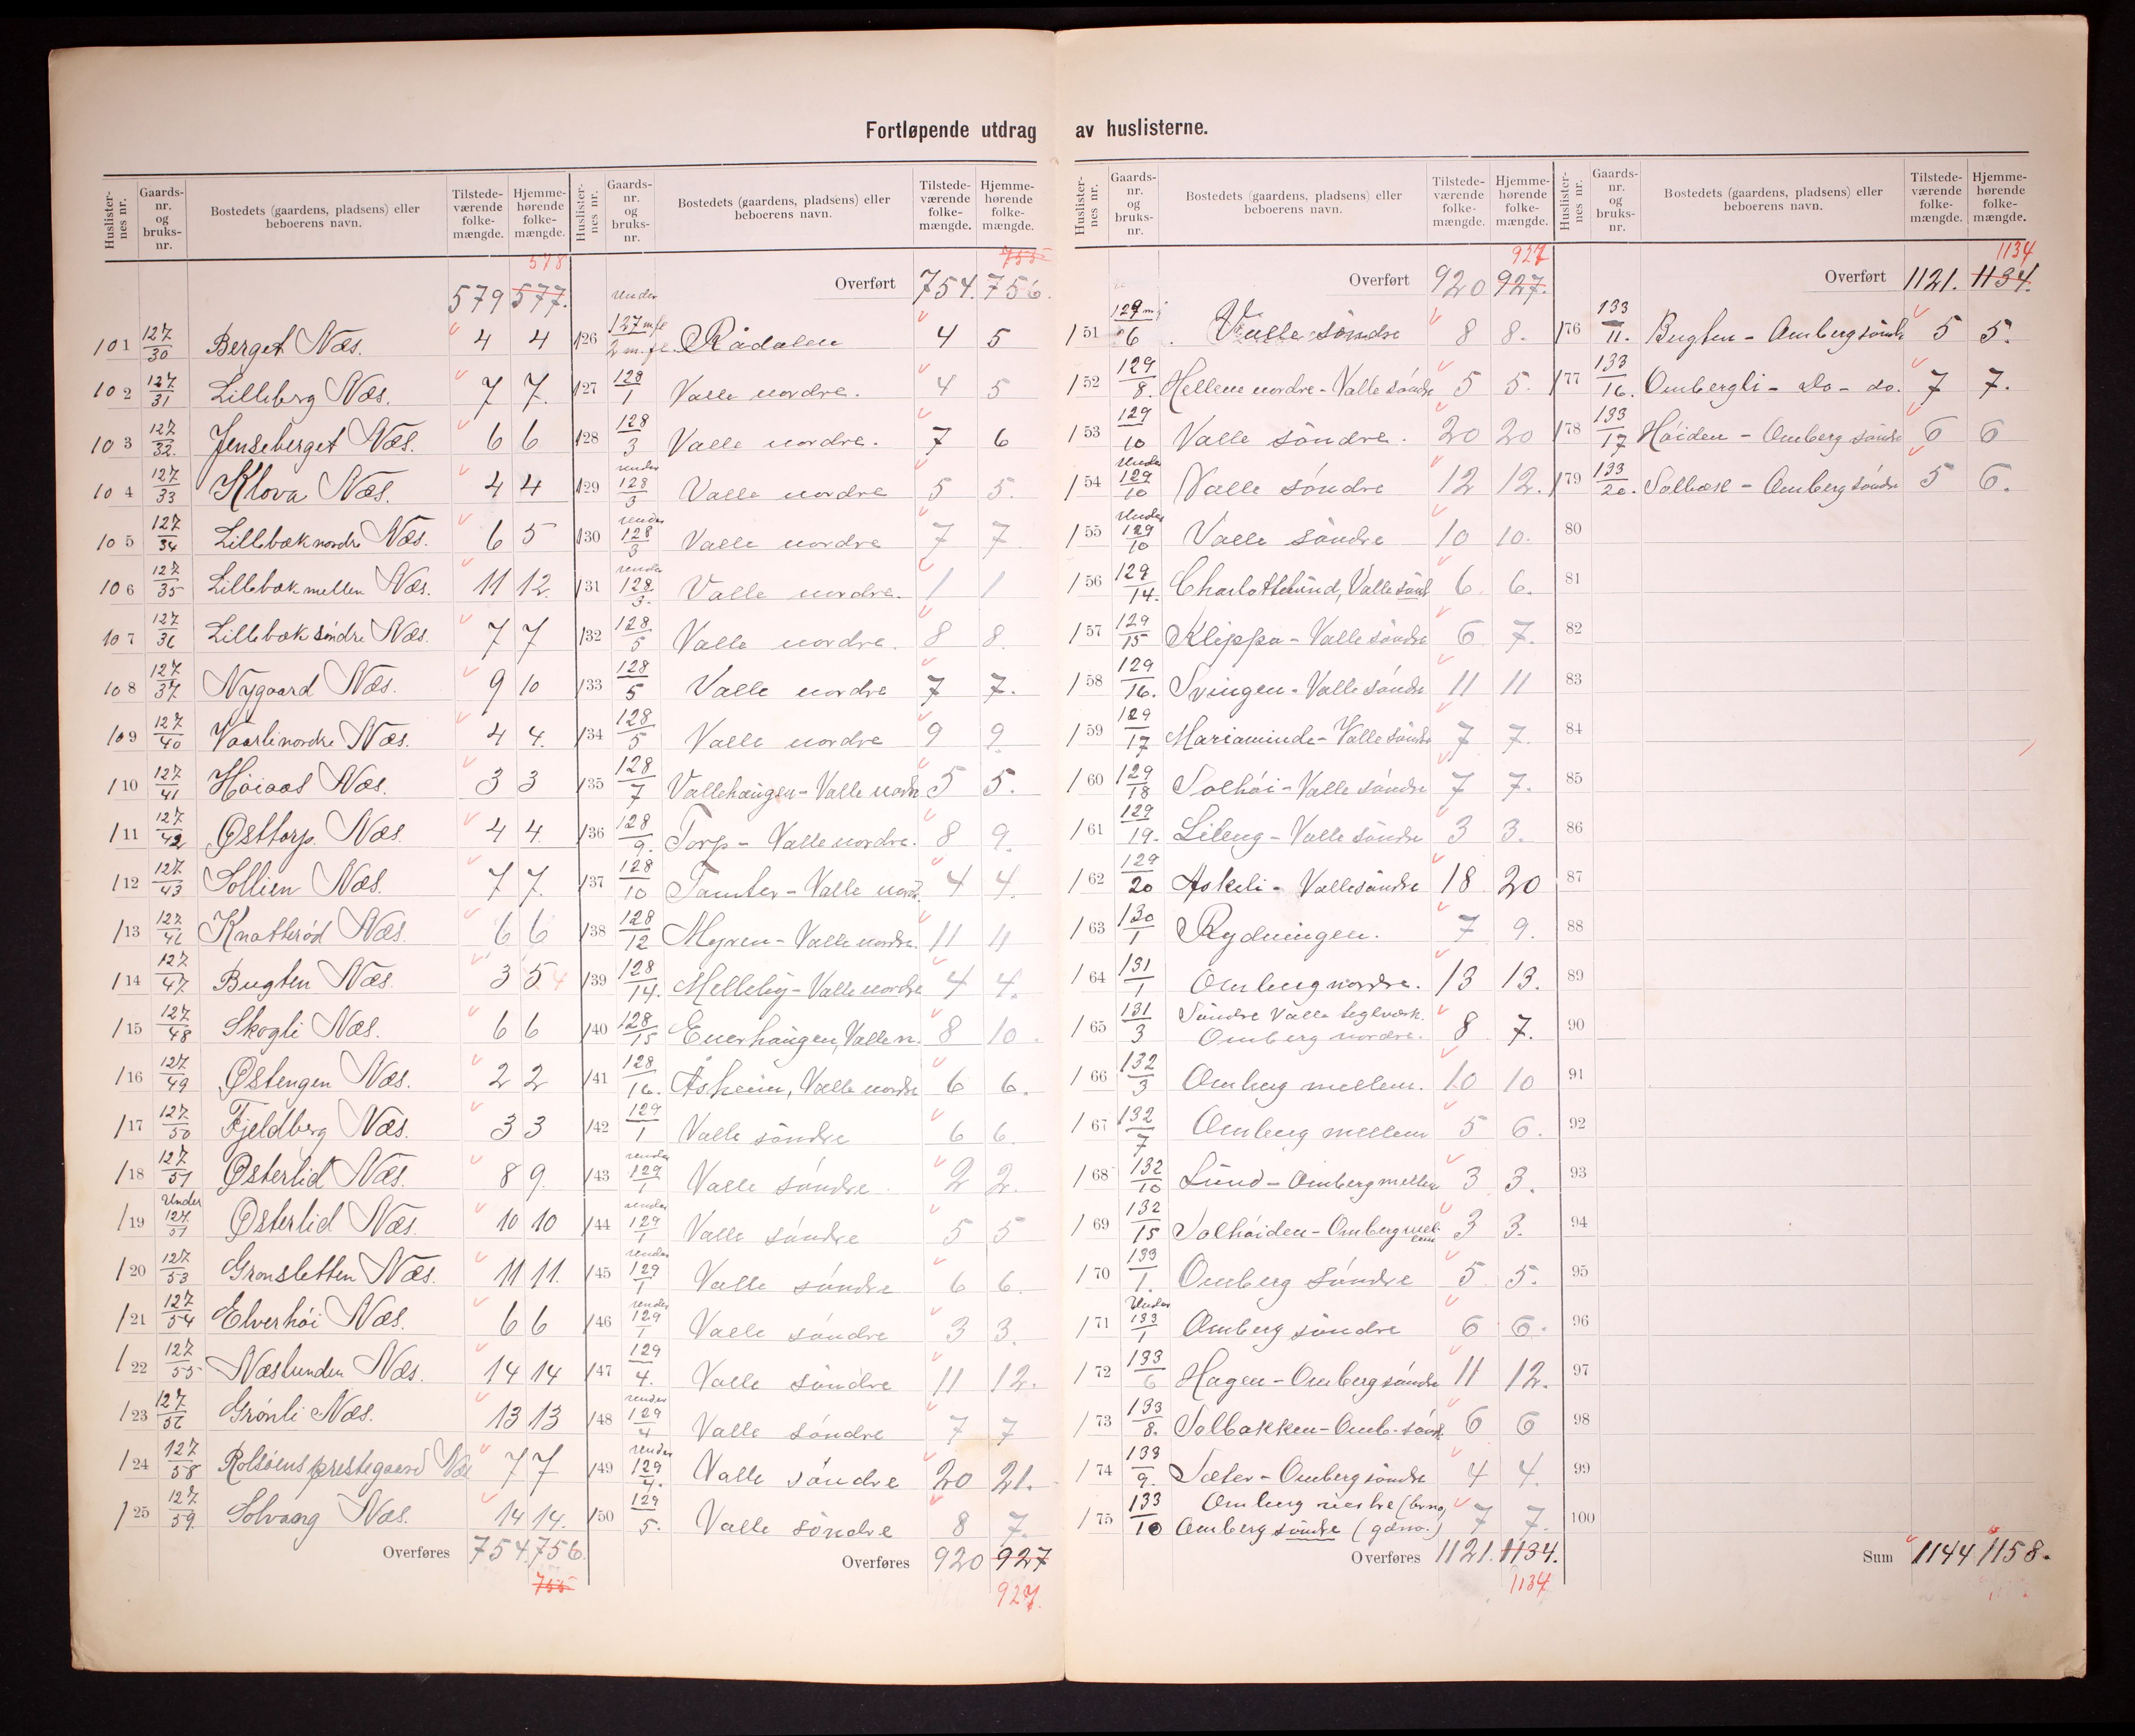 Fortløpende utdrag av huslisterne.
Huslister-nes nr. Gaards-nr. og bruks-nr. Bostedets (gaardens, pladsens) eller beboerens navn. Tilstede-værende folke-mængde. Hjemme-hørende folke-mængde.
578
579 577.
101 127/30 Berget Næs. 4 4
102 127/31 Lilleberg Næs. 7 7.
103 127/32. Jenseberget Næs. 6 6
104 127/33 Klova Næs. 4 4
105 127/34 Lillebæk nordre Næs. 6 5
106 127/35 Lillebæk mellem Næs. 11 12.
107 127/36 Lillebæk søndre Næs. 7 7
108 127/37 Nygaard Næs. 9 10
109 127/40 Vaarli nordre Næs. 4 4.
110 127/41 Høiaas Næs. 3 3
111 127/42 Østtorp Næs 4 4.
112 127/43 Sollien Næs. 7 7.
113 127/46 Knatterød Næs. 6 6
114 127/47 Bugten Næs. 3 5 4
115 127/48 Skogli Næs. 6 6
116 127/49 Østengen Næs. 2 2
117 127/50 Fjeldberg Næs. 3 3
118 127/51 Østerlid Næs. 8 9.
119 Under 127/51 Østerlid Næs. 10 10
120 127/53 Grønsletten Næs. 11 11.
121 127/54 Elverhøi Næs. 6 6
122 127/55 Næslunden Næs. 14 14
123 127/56 Grønli Næs. 13 13
124 127/58 Rolsøens prestegaard Næs 7 7
125 127/59. Solvang Næs. 14 14.
Overføres 754. 756.
755
Huslister-nes nr. Gaards-nr. og bruks-nr. Bostedets (gaardens, pladsens) eller beboerens navn. Tilstede-værende folke-mængde. Hjemme-hørende folke-mængde.
755
Overført 754. 756.
126 Under 127 m.fl./2 m.fl. Rådalen 4 5
127 128/1 Valle nordre. 4 5
128 128/3 Valle nordre. 7 6
129 under 128/3 Valle nordre 5 5.
130 under 128/3 Valle nordre 7 7
131 under 128/3. Valle nordre. 1 1
132 128/5 Valle nordre. 8 8.
133 128/5 Valle nordre 7 7.
134 128/5 Valle nordre 9 9.
135 128/7 Vallehaugen - Valle nordre 5 5.
136 128/9. Torp - Valle nordre. 8 9.
137 128/10 Tomter - Valle nordr. 4 4.
138 128/12 Myren - Valle nordre. 11 11
139 128/14. Melleby - Valle nordre 4 4.
140 128/15 Enerhaugen, Valle n. 8 10.
141 128/16. Åsheim, Valle nordre 6 6.
142 129/1 Valle søndre 6 6.
143 under 129/1 Valle søndre 2 2.
144 under 129/1 Valle søndre 5 5
145 under 129/1 Valle søndre 6 6.
146 under 129/1 Valle søndre 3 3.
147 129/4. Valle søndre 11 12.
148 under 129/4 Valle søndre 7 7
149 under 129/4. Valle søndre 20 21.
150 129/5. Valle søndre 8 7.
Overføres 920 927
927.
Huslister-nes nr. Gaards-nr. og bruks-nr. Bostedets (gaardens, pladsens) eller beboerens navn. Tilstede-værende folke-mængde. Hjemme-hørende folke-mængde.
927
Overført 920 927.
151 129/6. Valle søndre 8 8.
152 129/8. Hellene nordre - Valle søndre 5 5.
153 129/10 Valle søndre. 20 20
154 Under 129/10 Valle søndre 12 12.
155 Under 129/10 Valle søndre 10 10.
156 129/14. Charlottelund, Valle sønd 6. 6.
157 129/15 Klippa - Valle søndre 6 7.
158 129/16. Svingen - Valle søndre 11 11
159 129/17 Mariaminde - Valle søndre 7 7.
160 129/18 Solhøi - Valle søndre 7 7.
161 129/19. Lileng - Valle søndre 3 3.
162 129/20 Askeli - Valle søndre 18 20
163 130/1 Rydningen. 7 9.
164 131/1 Omberg nordre. 13 13.
165 131/3 Søndre Valle teglværk. Omberg nordre. 8 7.
166 132/3 Omberg mellem. 10 10
167 132/7 Omberg mellem 5 6.
168 132/10 Lund - Omberg mellem 3 3.
169 132/15 Solhøiden - Omberg mellem 3 3.
170 133/1. Omberg søndre 5 5.
171 Under 133/1 Omberg søndre 6 6.
172 133/6 Hagen - Omberg søndre 11 12.
173 133/8. Solbakken - Omb. sønd. 6 6
174 133/9. Sæter - Omberg søndre 4 4.
175 133/10 Omberg (brno)
Omberg søndre (gdno.) 7 7.
Overføres 1121. 1134.
1134
Huslister-nes nr. Gaards-nr. og bruks-nr. Bostedets (gaardens, pladsens) eller beboerens navn. Tilstede-værende folke-mængde. Hjemme-hørende folke-mængde.
1134
Overført 1121. 1134.
176 133/11. Bugten - Omberg søndr 5 5.
177 133/16. Ombergli - Do - do. 7 7.
178 133/17 Høiden - Omberg søndre 6 6
179 133/20. Solbæk - Omberg søndre 5 6.
80
81
82
83
84
85
86
87
88
89
90
91
92
93
94
95
96
97
98
99
100
Sum 1144 1158.